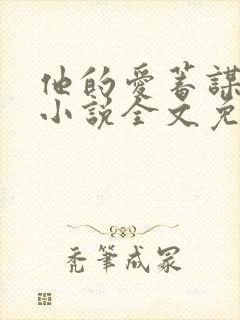 他的爱蓄謀
小说全文免
秃筆成冢